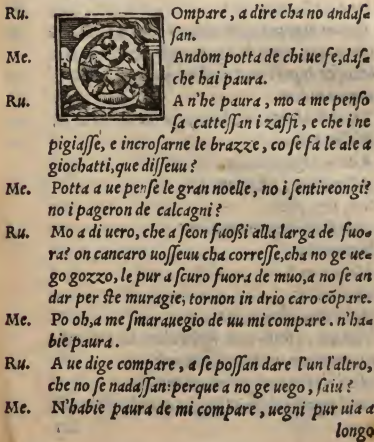 Ru. COmpare, a dire cha no andaſ-
ſan.
Me. Andom potta de chi ue fe, daſ-
che hai paura.
Ru. A n'he paura, mo a me penſo
ſa catteſſan i zaffi, e che i ne
pigiaſſe, e incroſarne le brazze, co ſe fa le ale a
giochatti, que diſſeuu?
Me. Potta a ue penſe le gran noelle, no i ſentireongi?
no i pageron de calcagni?
Ru. Mo a di uero, che a ſeon fuoßi alla larga de fuo-
ra? on cancaro uoſſeuu cha correſſe, cha no ge ue-
go gozzo, le pur a ſcuro fuora de muo, a no ſe an
dar per ſte muragie, tornon in drio caro cōpare.
Me. Po oh, a me ſmarauegio de uu mi compare. n'ha-
bie paura.
Ru. A ue dige compare, a ſe poſſan dare l'un l'altro,
che no ſe nadaſſan: perque a no ge uego, ſaiu?
Me. N'habie paura de mi compare, uegni pur uia a
longo